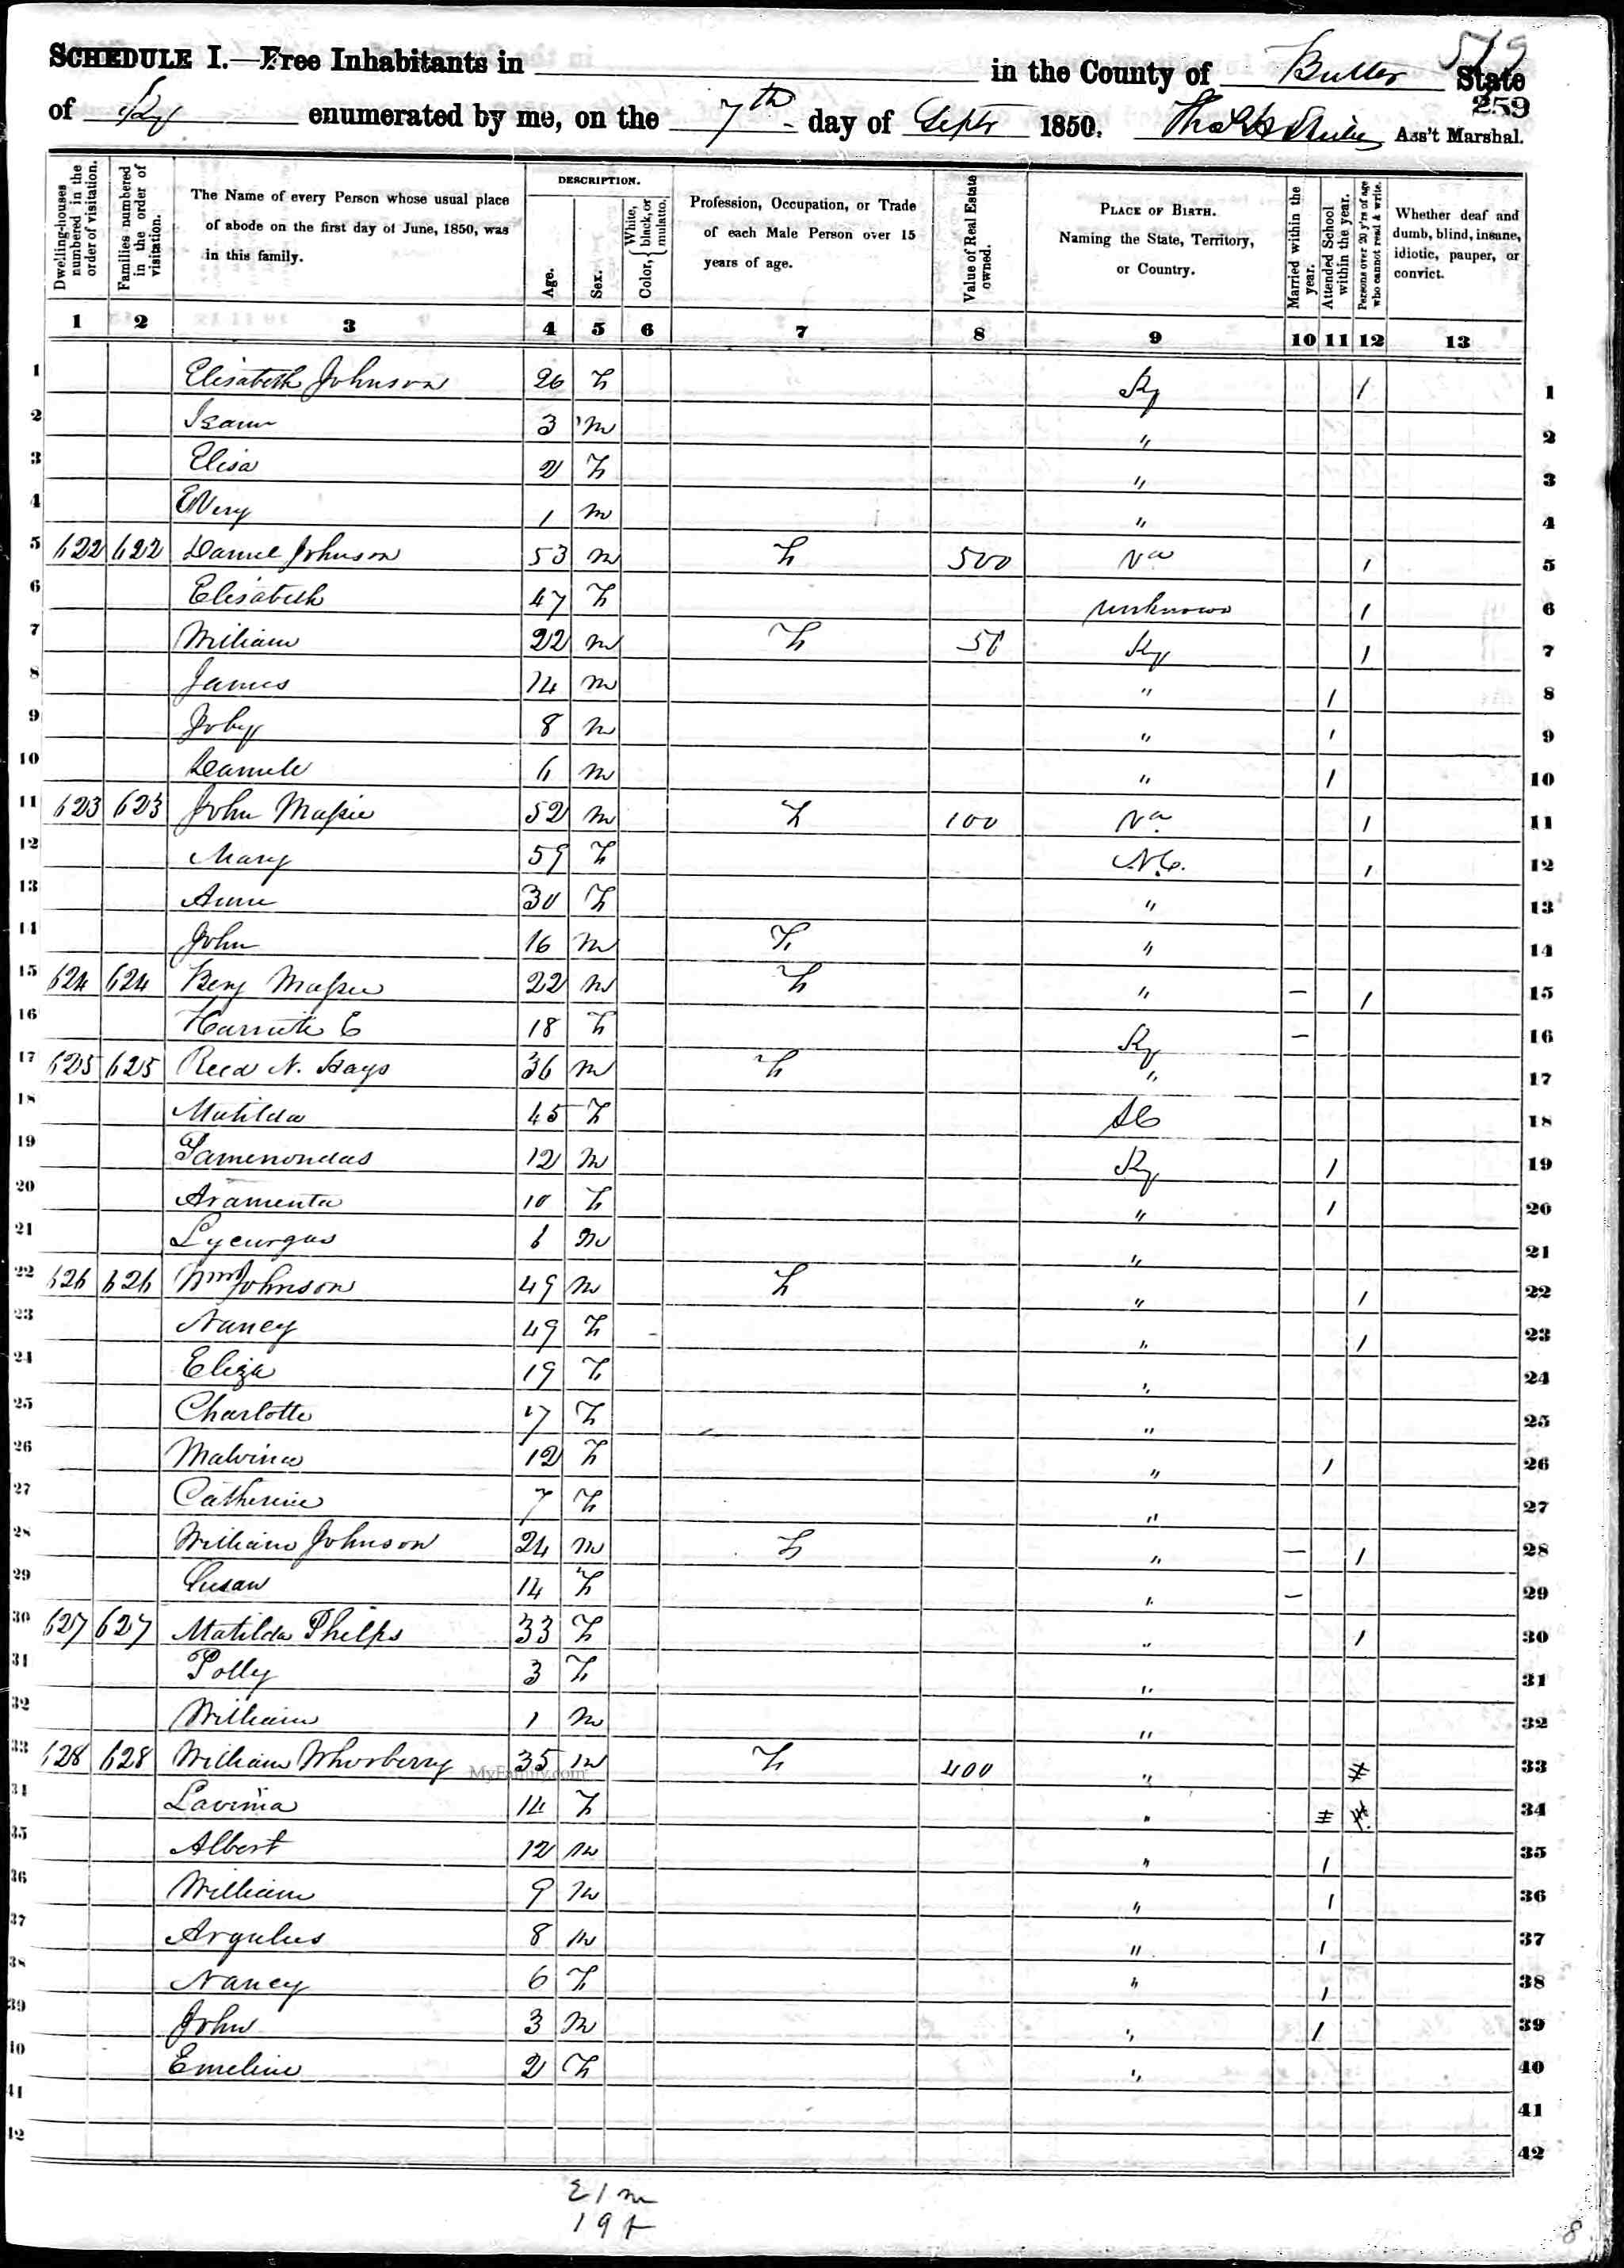 519
SCHEDULE I.—Free Inhabitants in in the County of Butler State
259
of Ky enumerated by me, on the 7th day of Septr 1850. Ass't Marshal.
Dwelling-houses numbered in the order of visitation.
Families numbered in the order of visitation.
The Name of every Person whose usual place of abode on the first day of June, 1850, was in this family.
DESCRIPTION.
Age.
Sex.
Color, { White, black, or mulatto.
Profession, Occupation, or Trade of each Male Person over 15 years of age.
Value of Real Estate owned.
PLACE OF BIRTH. Naming the State, Territory, or Country.
Married within the year.
Attended School within the year.
Persons over 20 y'rs of age who cannot read & write.
Whether deaf and dumb, blind, insane, idiotic, pauper, or convict.
1 2 3 4 5 6 7 8 9 10 11 12 13
1 Elisabeth Johnson 26 F Ky / 1
2 3 m " 2
3 Elisa 2 F " 3
4 1 m " 4
5 622 622 Daniel Johnson 53 m F 500 Va / 5
6 Elisabeth 47 F unknown / 6
7 William 22 m F 50 Ky / 7
8 James 14 m " / 8
9 Joby 8 m " / 9
10 Daniele 6 m " / 10
11 623 623 John Massie 52 m F 100 Va / 11
12 Mary 59 F N.C. / 12
13 Anne 30 F " 13
14 John 16 m F " 14
15 624 624 Benj Massie 22 m F " – / 15
16 Harriett E 18 F Ky – 16
17 625 625 Reed N. Hays 36 m F " 17
18 Matilda 45 F SC 18
19 Pamenondas 12 m Ky / 19
20 Aramenta 10 F " / 20
21 Lycurgus 6 m " 21
22 626 626 Wm Johnson 49 m F " / 22
23 Nancy 49 F " / 23
24 Eliza 19 F " 24
25 Charlotte 17 F " 25
26 Malvina 12 F " / 26
27 Catherine 7 F " 27
28 William Johnson 24 m F " – / 28
29 Susan 14 F " – 29
30 627 627 Matilda Phelps 33 F " / 30
31 Polly 3 F " 31
32 William 1 m " 32
33 628 628 William Whorberry 35 m F 400 " # 33
MyFamily.com
34 Lavinia 14 F " # # 34
35 Albert 12 m " / 35
36 William 9 m " / 36
37 Argulus 8 m " / 37
38 Nancy 6 F " / 38
39 John 3 m " / 39
40 Emeline 2 F " 40
41 41
42 42
21 m
19 f
8